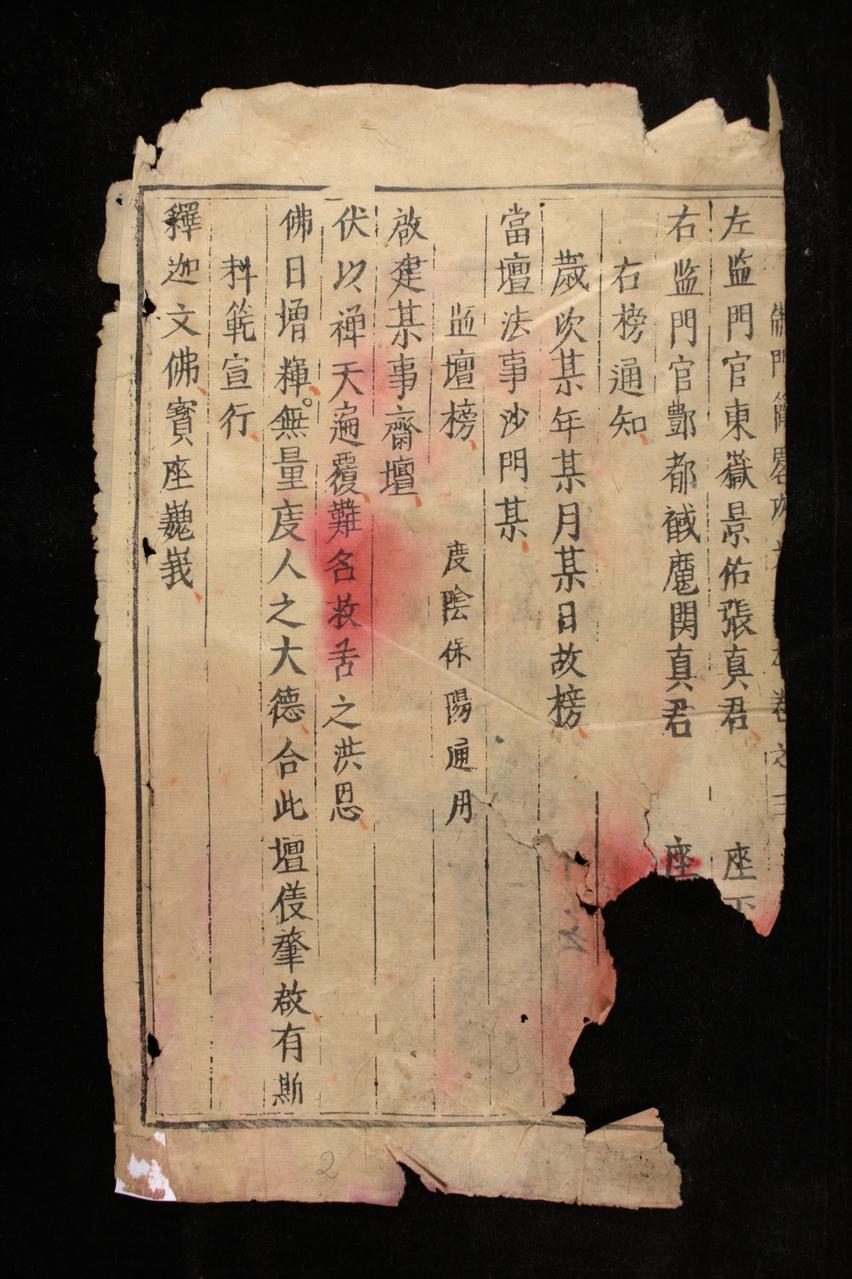 左监門官東嶽景佑張真君 座下
右监門官酆都馘魔関真君 座
右榜通知
歲次某年某月某日故榜
當壇法事沙門某
监壇榜 度陰保陽通用
啟建某事齋壇
伏以禅天遍覆難名救苦之洪恩
佛日增輝無量度人之大德合此壇儀肇啟有斯
科範宣行
釋迦文佛寳座巍峩
2